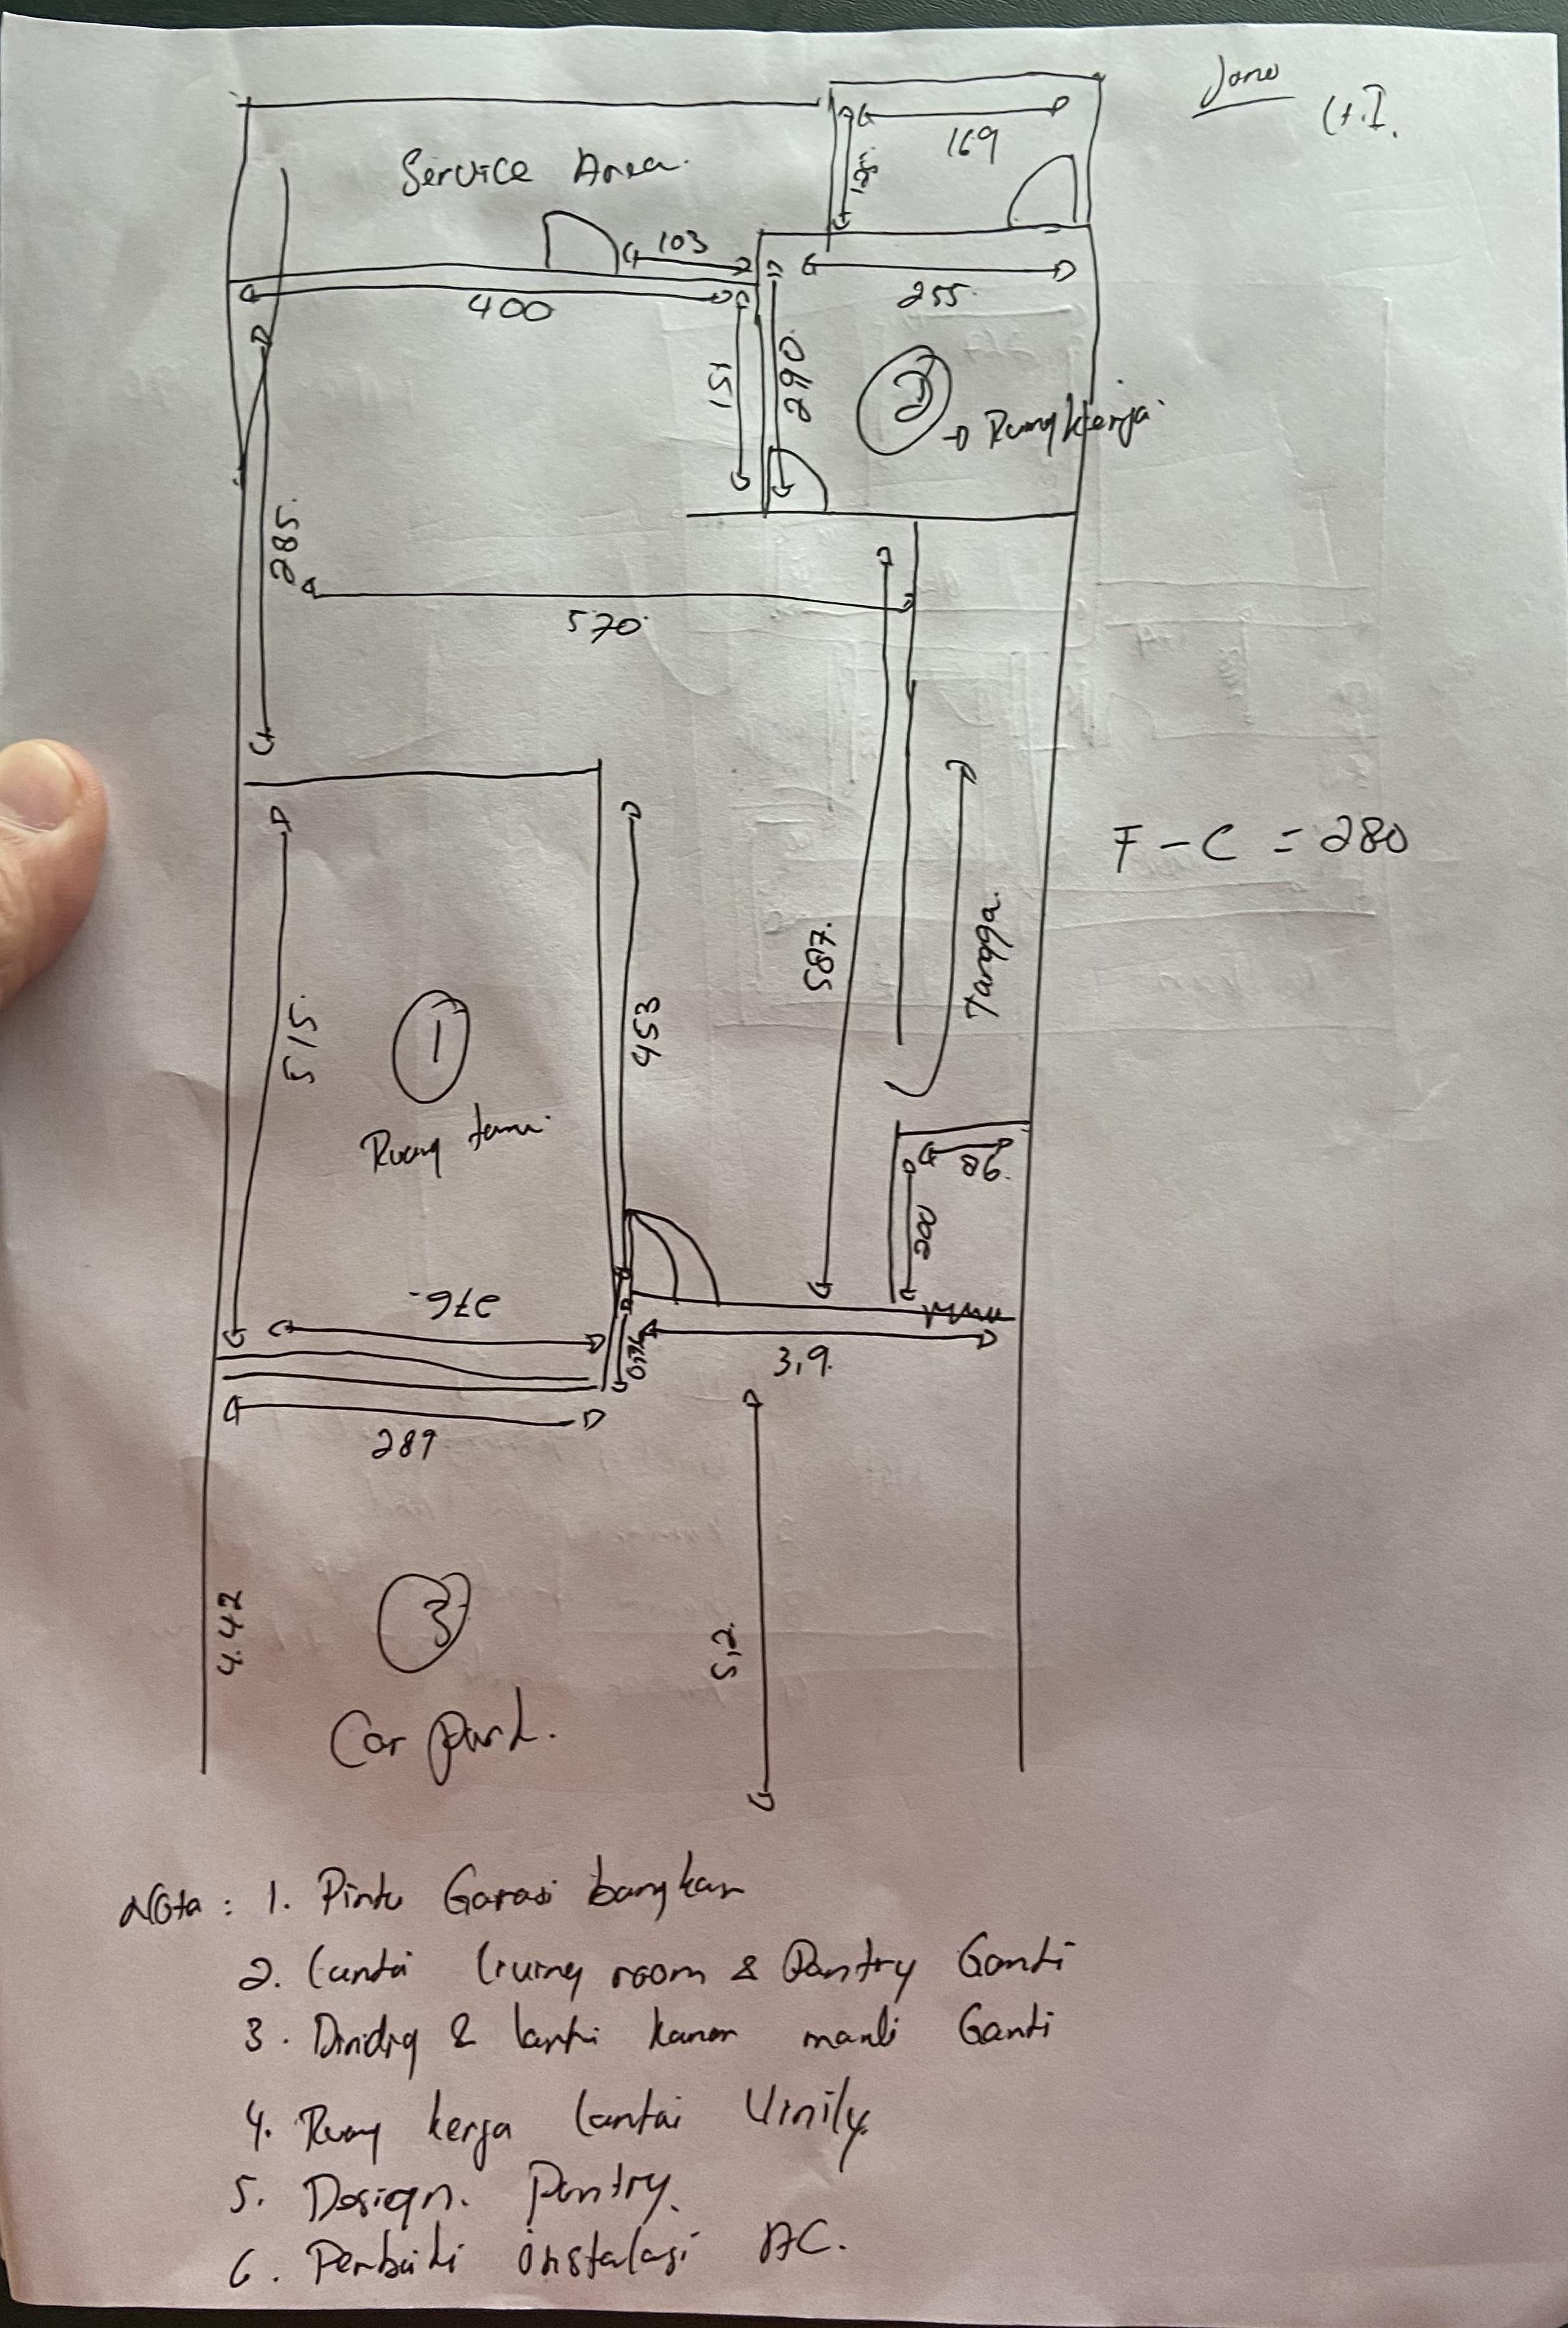 Lt.I.
169
Service Area.
103
255.
400
151
290
2
→ Ruang kerja.
285.
570
F - C = 280
Tangga.
587.
515.
453
1
Ruang tamu.
96.
200
276.
3,9.
289
4.42
3
5,2
Car Park.
Nota : 1. Pintu Garasi bongkar
2. Lantai living room & Pantry Ganti
3. Dinding & lantai kamar mandi Ganti
4. Ruang kerja lantai Vinily.
5. Design. Pantry.
6. Perbaiki instalasi AC.